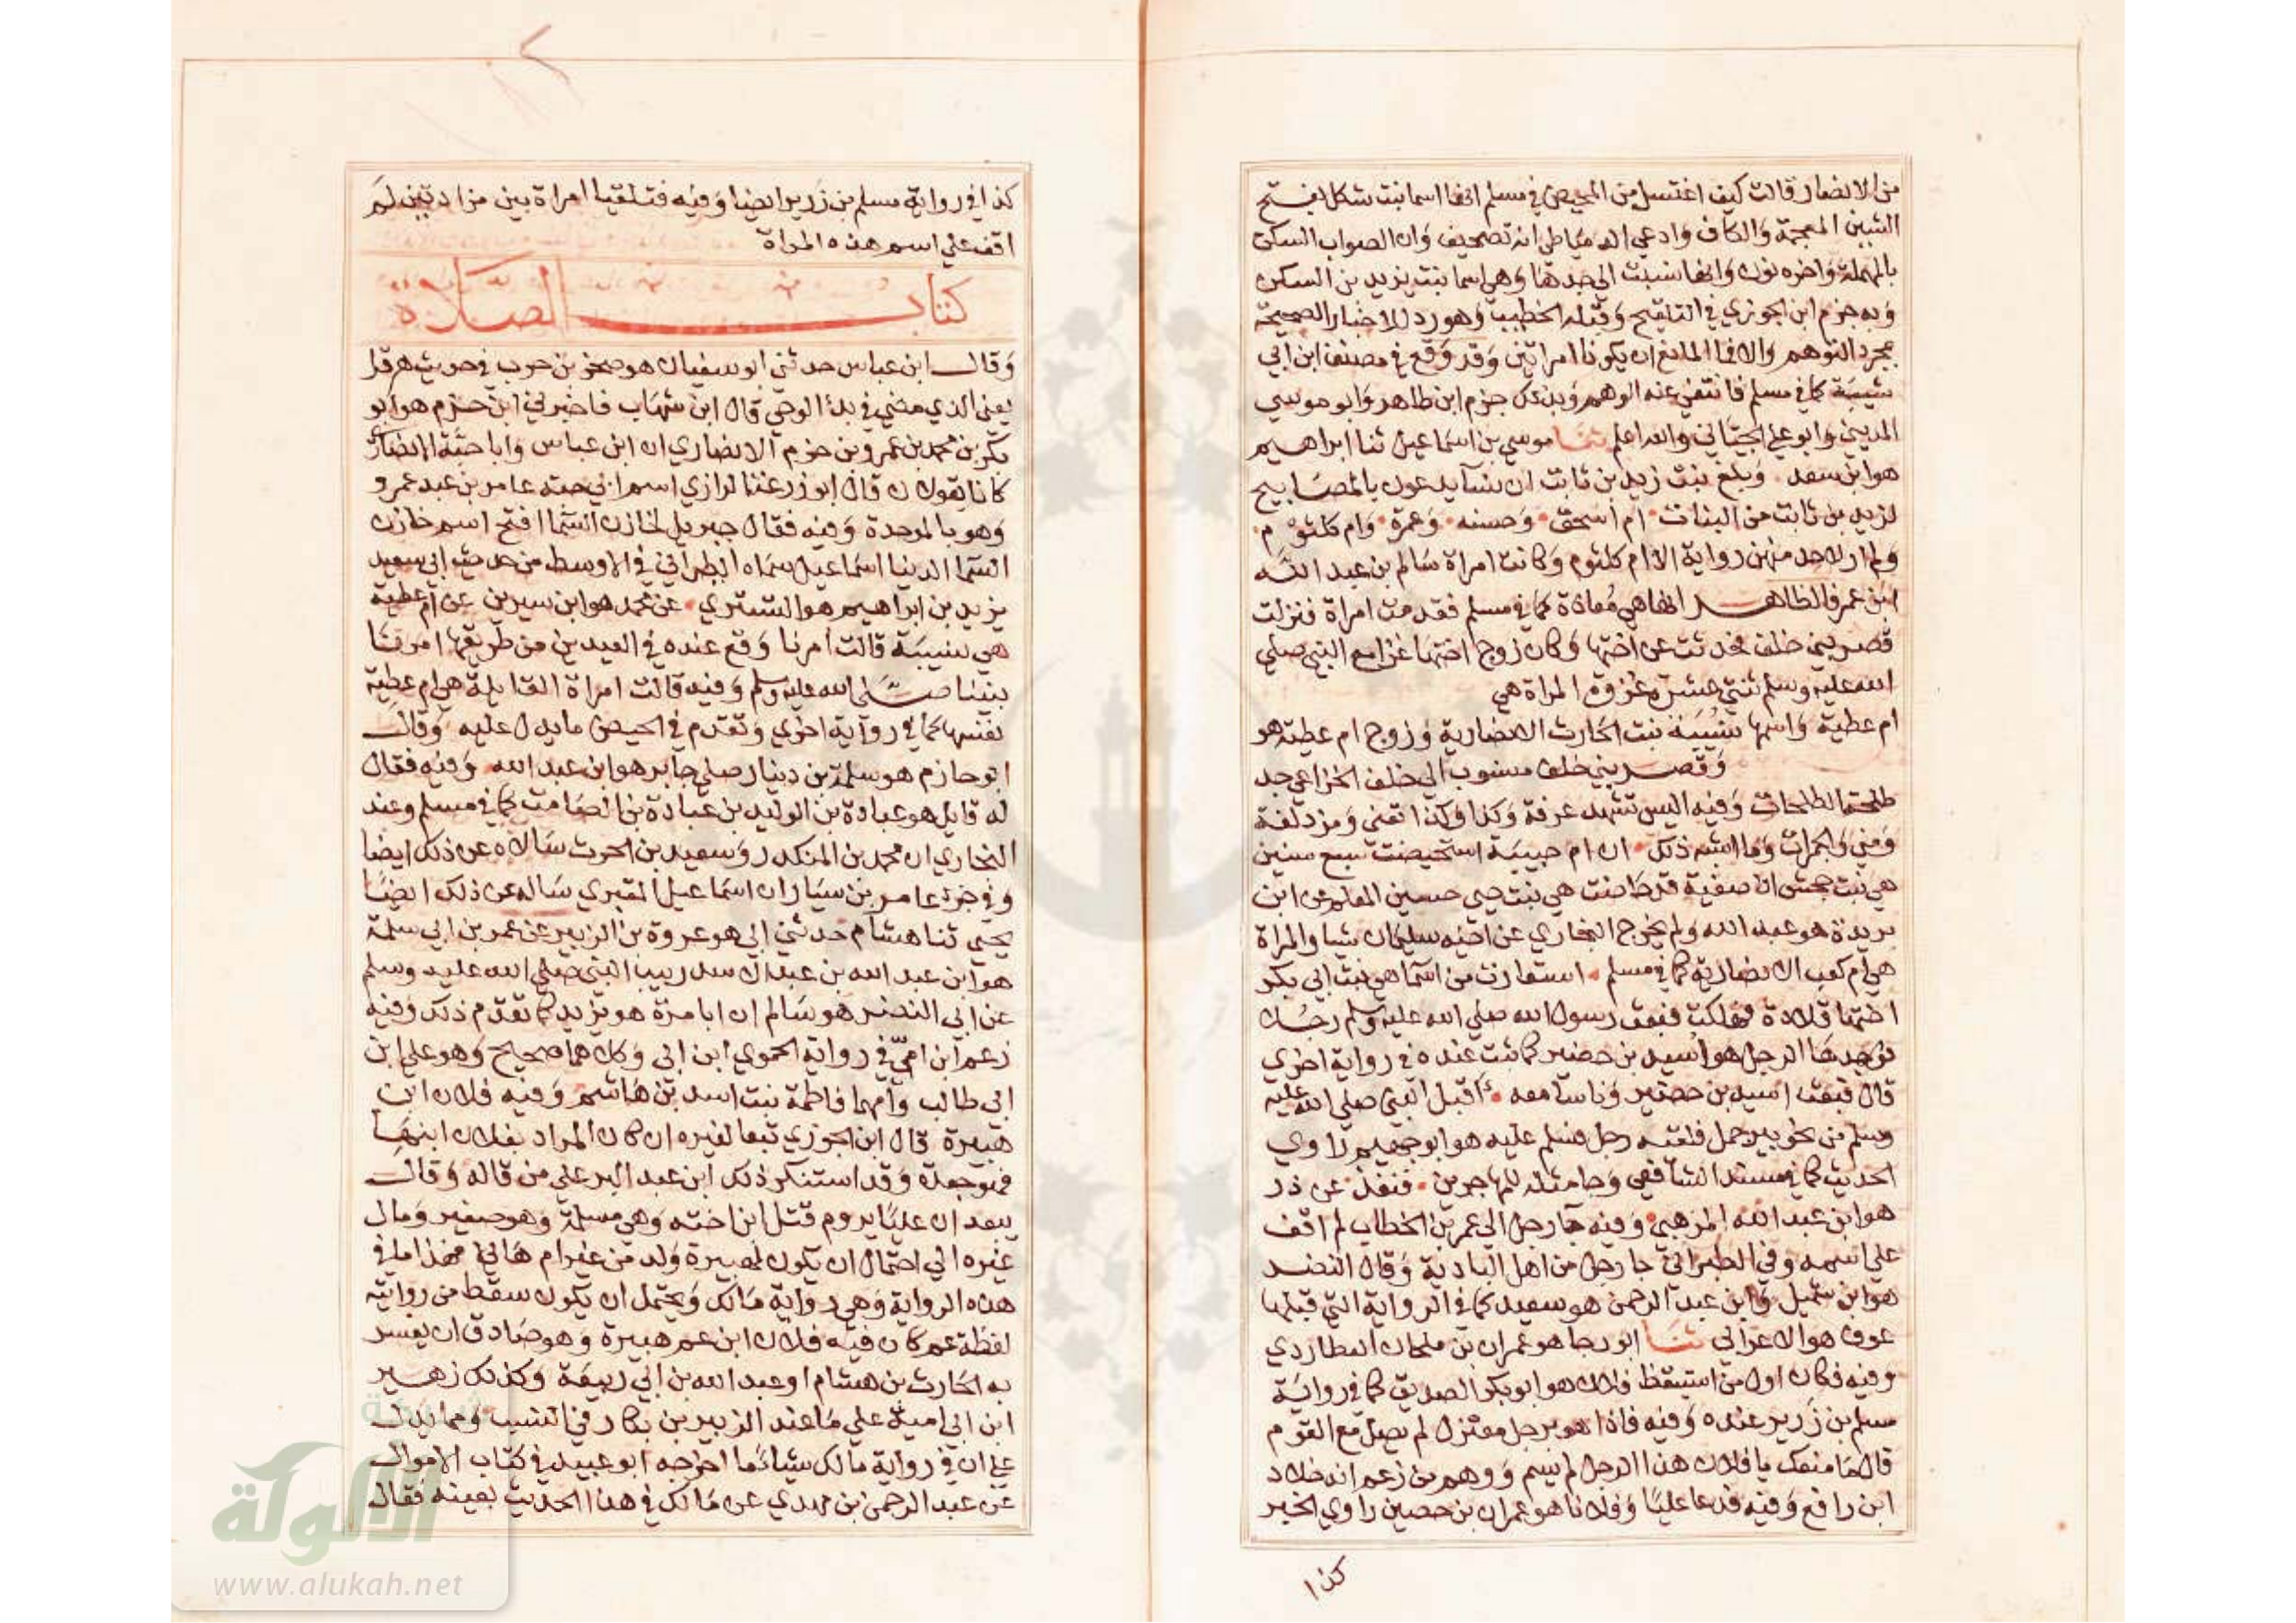 من الانصار قالت كيف اغتسل من المحيض في مسلم انها اسما بنت شكل بفتح
الشين المعجمة والكاف وادعي الدمياطي انه تصحيف وان الصواب السكن
بالمهملة واخره نون وانها نسبت الي جدها وهي اسما بنت يزيد بن السكن
وبه جزم ابن الجوزي في التلقيح وقبله الخطيب وهو رد للاخبار الصحيحة
بمجرد التوهم والا فما المانع ان يكونا امراتين وقد وقع في مصنف ابن ابي
شيبة كما في مسلم فانتفي عنه الوهم وبذلك جزم ابن طاهر وابو موسي
المديني وابو علي الجياني والله اعلم ثنا موسي بن اسماعيل ثنا ابراهيم
هو ابن سعد وبلغ بنت زيد بن ثابت ان نسآ يدعون بالمصابيح
لزيد بن ثابت من البنات ام اسحق وحسنه وعمرة وام كلثوم
ولم ار لاحد منهن رواية الا ام كلثوم وكانت امراة سالم بن عبد الله
ابن عمر فالظاهر انها هي معاذة كما في مسلم فقدمت امراة فنزلت
قصر بني خلف فحدثت عن اختها وكان زوج اختها غزا مع النبي صلي
الله عليه وسلم ثنتي عشرة غزوة المراة هي
ام عطية واسمها نسيبة بنت الحارث الانصارية وزوج ام عطية هو
وقصر بني خلف منسوب الي خلف الخزاعي جد
طلحة الطلحات وفيه اليس تشهد عرفة وكذا وكذا تعني ومزدلفة
ومني والجمرات وما اشبه ذلك ان ام حبيبة استحيضت سبع سنين
هي بنت جحش ان صفية قد حاضت هي بنت حيي حسين المعلم عن ابن
بريدة هو عبد الله ولم يخرج البخاري عن اخيه سليمان شيا والمراة
هي ام كعب الانصارية كما في مسلم استعارت من اسما هي بنت ابي بكر
اختها قلادة فهلكت فبعث رسول الله صلي الله عليه وسلم رجلا
فوجدها الرجل هو اسيد بن حضير كما ثبت عنده في رواية اخري
قال فبعث اسيد بن حضير وناسا معه اقبل النبي صلي الله عليه
وسلم من نحو بير جمل فلقيه رجل فسلم عليه هو ابو جهيم راوي
الحديث كما في مسند الشافعي وجا مثله للمهاجر بن قنفذ عن ذر
هو ابن عبد الله المرهبي وفيه جآ رجل الي عمر بن الخطاب لم اقف
علي اسمه وفي الطبراني جا رجل من اهل البادية وقال النضر
هو ابن شميل وابن عبد الرحمن هو سعيد كما في الرواية التي قبلها
عوف هو الاعرابي ثنا ابو رجا هو عمران بن ملحان العطاردي
وفيه فكان اول من استيقظ فلان هو ابو بكر الصديق كما في رواية
مسلم بن زرير عنده وفيه فاذا هو برجل معتزل لم يصل مع القوم
قال ما منعك يا فلان هذا الرجل لم يسم ووهم من زعم انه خلاد
ابن رافع وفيه فدعا عليا وفلانا هو عمران بن حصين راوي الخبر
كذا
كذا في رواية مسلم بن زرير ايضا وفيه فتلقيا امراة بين مزادتين لم
اقف علي اسم هذه المراة
كتاب الصلاة
وقال ابن عباس حدثني ابو سفيان هو صخر بن حرب في حديث هرقل
يعني الذي مضي في بدء الوحي قال ابن شهاب فاخبرني ابن حزم هو ابو
بكر بن محمد بن عمرو بن حزم الانصاري ان ابن عباس وابا حبة الانصاري
كانا يقولان قال ابو زرعة الرازي اسم ابي حبه عامر بن عبد عمرو
وهو بالموحدة وفيه فقال جبريل لخازن السما افتح اسم خازن
السما الدنيا اسماعيل سماه الطبراني في الاوسط من حديث ابي سعيد
يزيد بن ابراهيم هو التستري عن محمد هو ابن سيرين عن ام عطية
هي نسيبة قالت امرنا وقع عنده في العيدين من طريقها امرنا
نبينا صلي الله عليه وسلم وفيه قالت امراة القايلة هي ام عطية
نفسها كما في رواية اخري وتقدم في الحيض ما يدل عليه وقال
ابو حازم هو سلمة بن دينار صلي جابر هو ابن عبد الله وفيه فقال
له قايل هو عبادة بن الوليد بن عبادة بن الصامت كما في مسلم وعند
البخاري ان محمد بن المنكدر وسعيد بن الحرث سالاه عن ذلك ايضا
وفي جزء عامر بن سيار ان اسماعيل المقبري ساله عن ذلك ايضا
يحيي ثنا هشام حدثني ابي هو عروة بن الزبير عن عمر بن ابي سلمة
هو ابن عبد الله بن عبد الاسد ربيب النبي صلي الله عليه وسلم
عن ابي النضر هو سالم ان ابا مرة هو يزيد كما تقدم ذلك وفيه
زعم ابن امي في رواية الحموي ابن ابي وكلاهما صحيح وهو علي ابن
ابي طالب وامهما فاطمة بنت اسد بن هاشم وفيه فلان ابن
هبيرة قال ابن الجوزي تبعا لغيره ان كان المراد بفلان ابنها
فهو جعدة وقد استنكر ذلك ابن عبد البر علي من قاله وقال
يبعد ان عليا يروم قتل ابن اخته وهي مسلمة وهو صغير ومال
غيره الي احتمال ان يكون لهبيرة ولد من غير ام هاني هذا ما في
هذه الرواية وهي رواية مالك ويحتمل ان يكون سقط من روايته
لفظة عم كان فيه فلان ابن عم هبيرة وهو صادق ان يفسر
به الحارث بن هشام او عبد الله بن ابي ربيعة وكذلك زهير
ابن ابي امية علي ما عند الزبير بن بكار في النسب ومما يدل
علي ان في رواية مالك شيا ما اخرجه ابو عبيد في كتاب الاموال
عن عبد الرحمن بن مهدي عن مالك في هذا الحديث بعينه فقال
شبكة
الألوكة
www.alukah.net